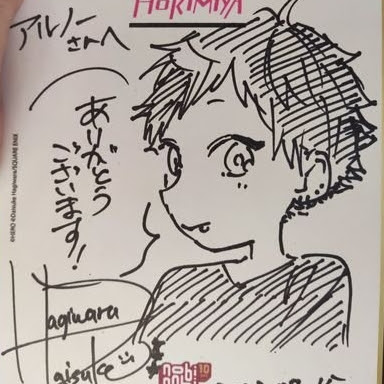 HORIMIYA
アルノー
さんへ
ありがとう
ございます!
©HERO ©Daisuke Hagiwara/SQUARE ENIX
Hagiwara
Daisuke
nobi
nobi